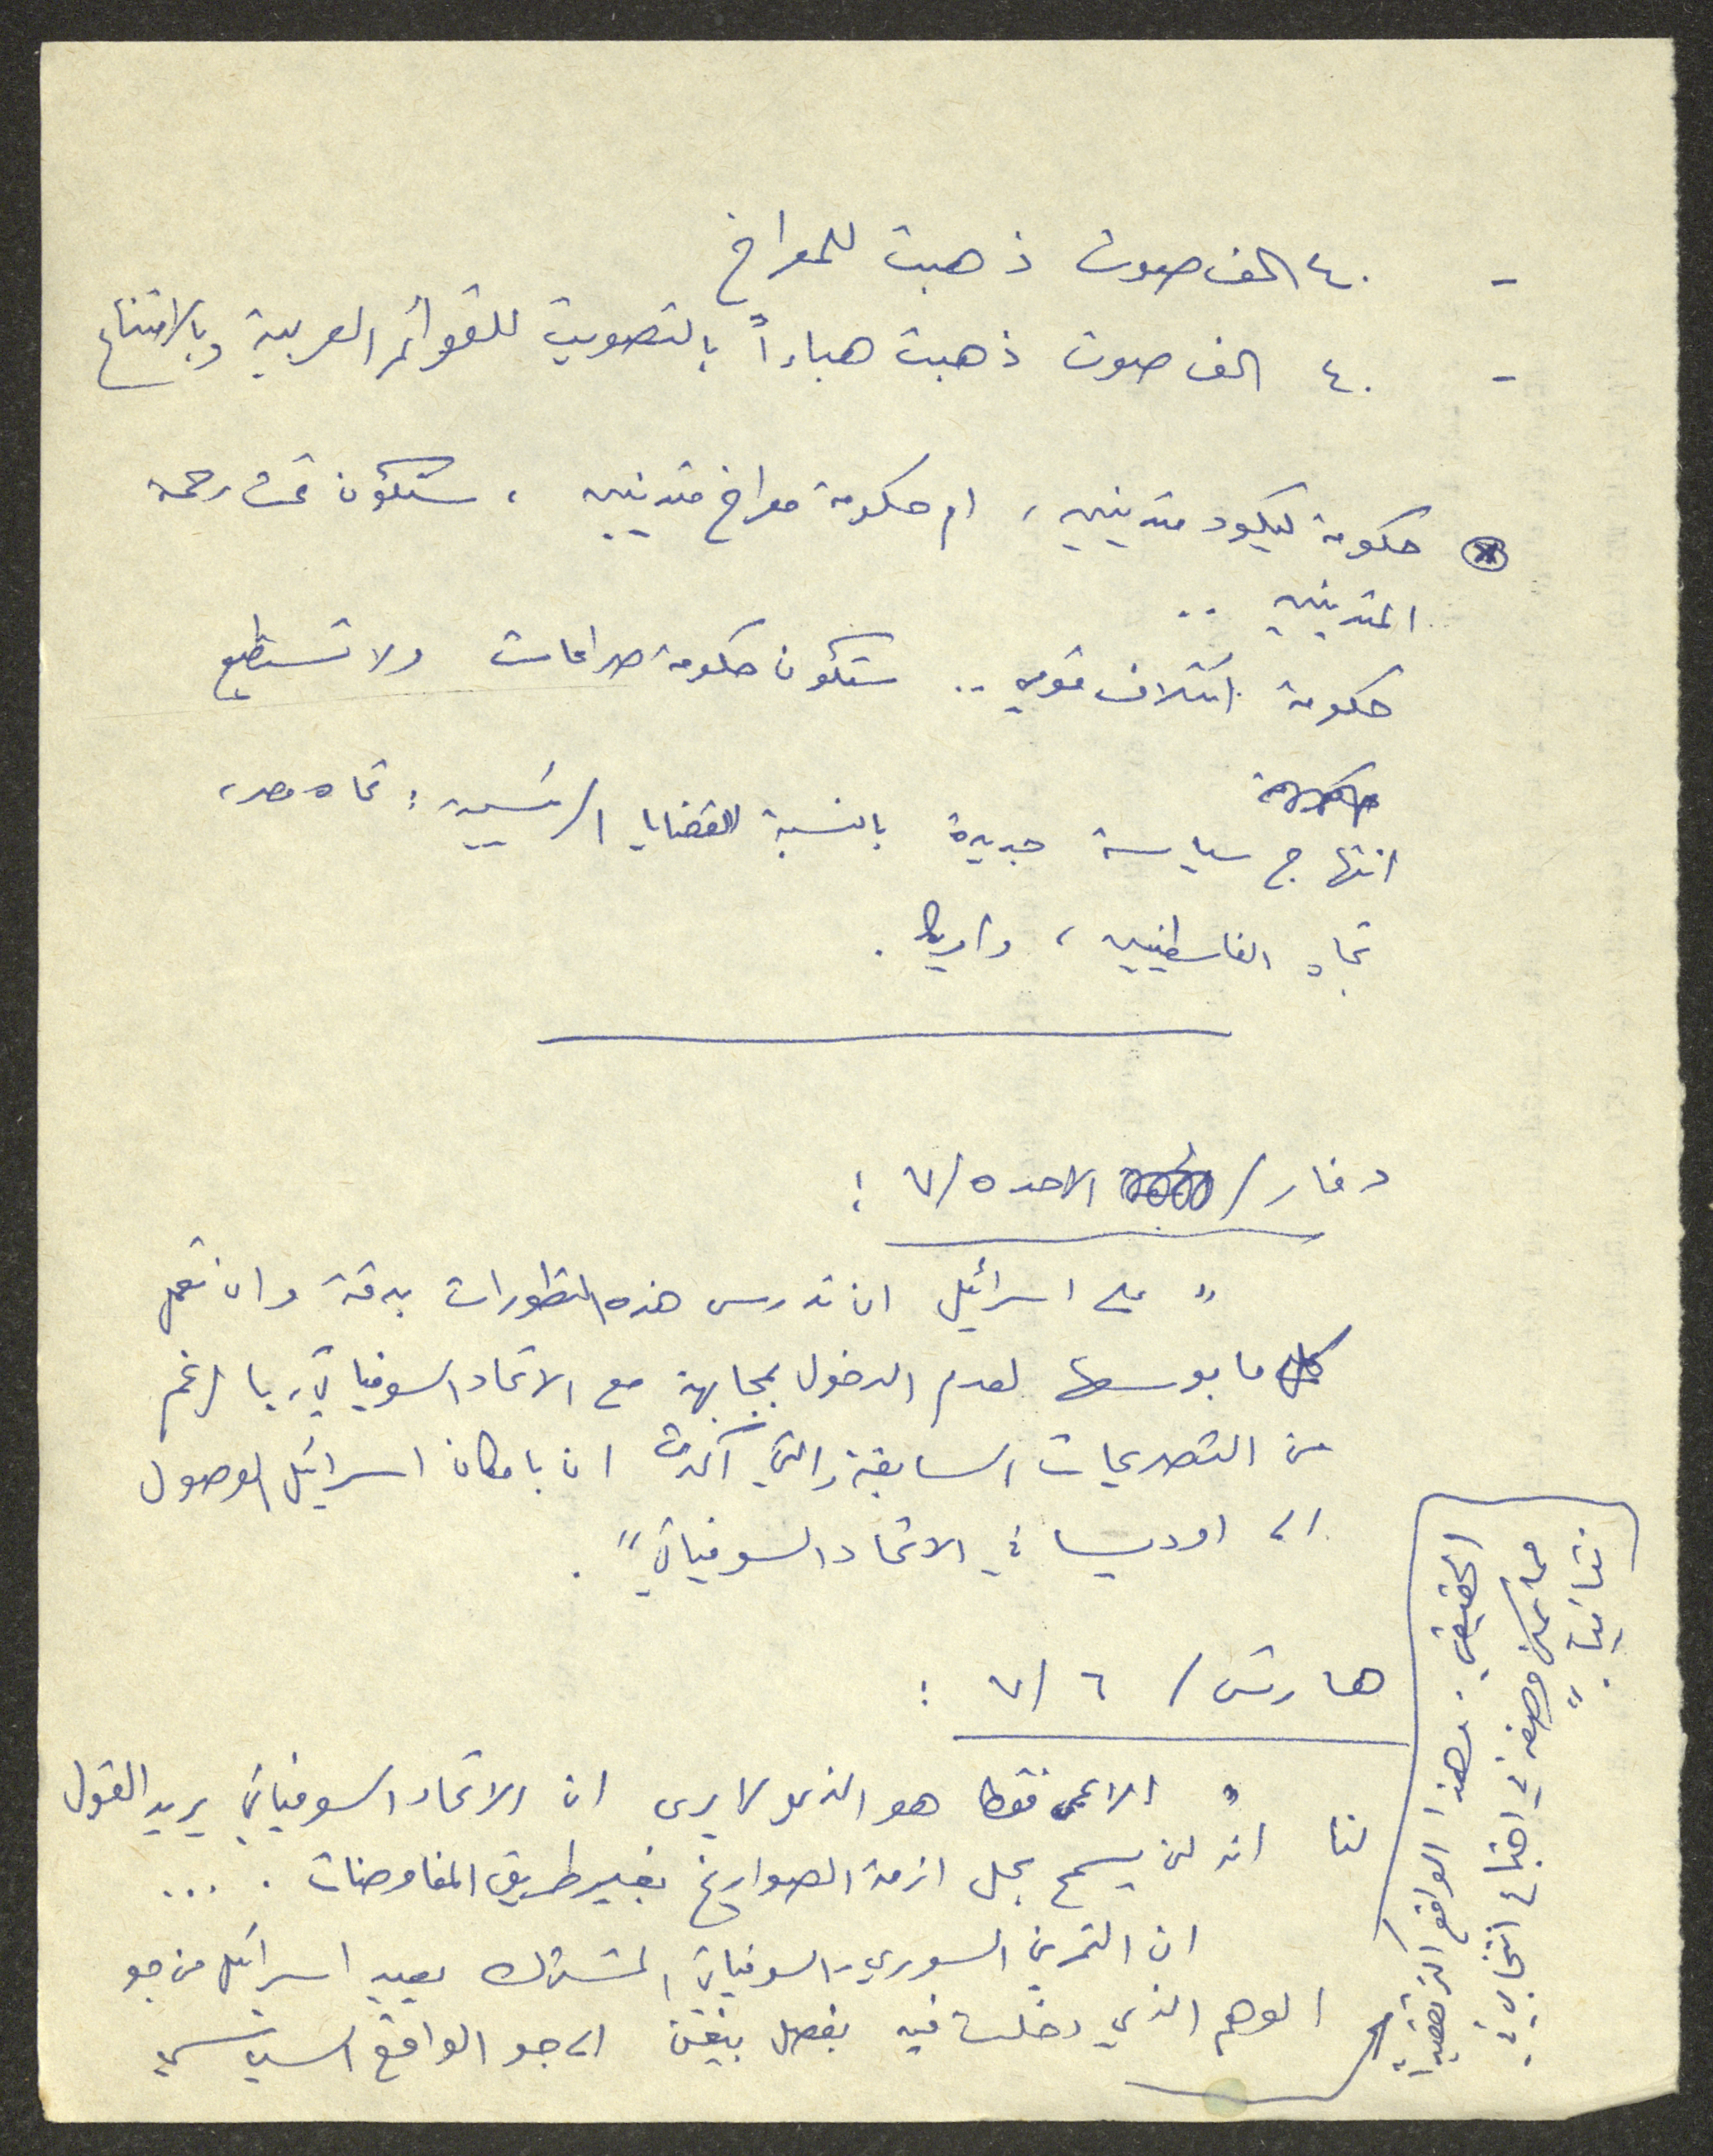 - ٤٠ الف صوت ذهبت للمعراخ
- ٤٠ الف صوت ذهبت هباءاً بالتصويت للقوائم العربية وبالامتناع
حكومة ليكود متدينين، ام حكومة معراخ متدينين، ستكون تحت رحمة
المتدينين ..
حكومة ائتلاف قومي .. ستكون حكومة صراعات ولا تستطيع
انتهاج سياسة جديدة بالنسبة للقضايا الرئيسية: تجاه مصر،
تجاه الفلسطينيين، وامريكا.
دفار / الاحد ٥/٧ :
" على اسرائيل ان تدرس هذه التطورات بدقة وان تعمل
كل ما بوسعها لعدم الدخول بمجابهة مع الاتحاد السوفياتي، بالرغم
من التصريحات السابقة والتي أكدت ان بامكان اسرائيل الوصول
الى اوديسا في الاتحاد السوفياتي".
هارتس / ٦/٧ :
" الاعمى فقط هو الذي لا يرى ان الاتحاد السوفياتي يريد القول
لنا انه لن يسمح بحل ازمة الصواريخ بغير طريق المفاوضات . ...
ان التمرين السوري-السوفياتي المشترك يعيد اسرائيل من جو
الوهم الذي دخلت فيه بفضل بيغن الى جو الواقع السياسي
الحقيقي. وهذا الواقع اكثر تعقيدا
مما يمكن وصفه في اجتماع انتخابي في
نتانيا."